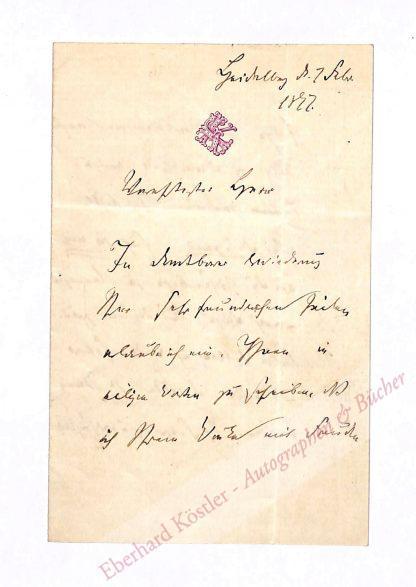 Heidelberg d. 7 Febr.
1877.
Verehrtester Herr
In dankbarer Erwiderung
Ihrer sehr freundlichen Zeilen
erlaube ich mir, Ihnen in
eiligen Worten zu schreiben, daß
ich Ihrem mit Freuden
Eberhard Köstler - Autographen & Bücher